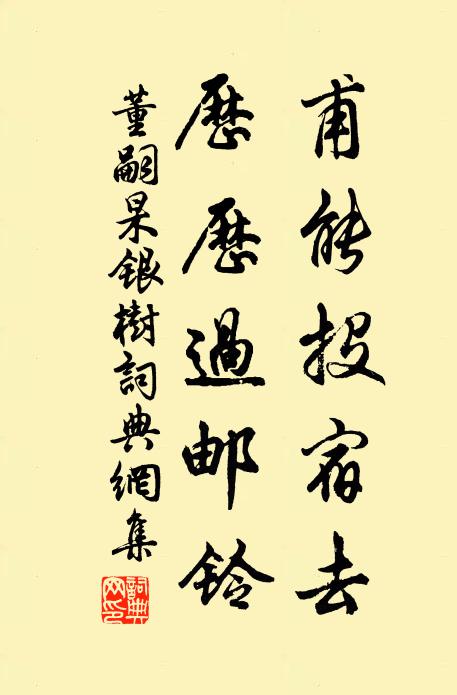 甫能投宿去
歷歷過邮鈴
董嗣杲銀樹詞典網集
詞典網印